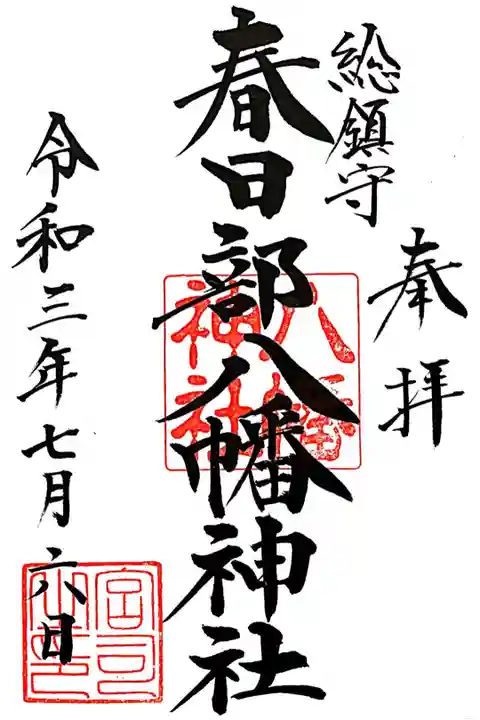 奉拝
総鎮守
春日部八幡神社
八幡
神社
令和三年七月六日
宮司之印